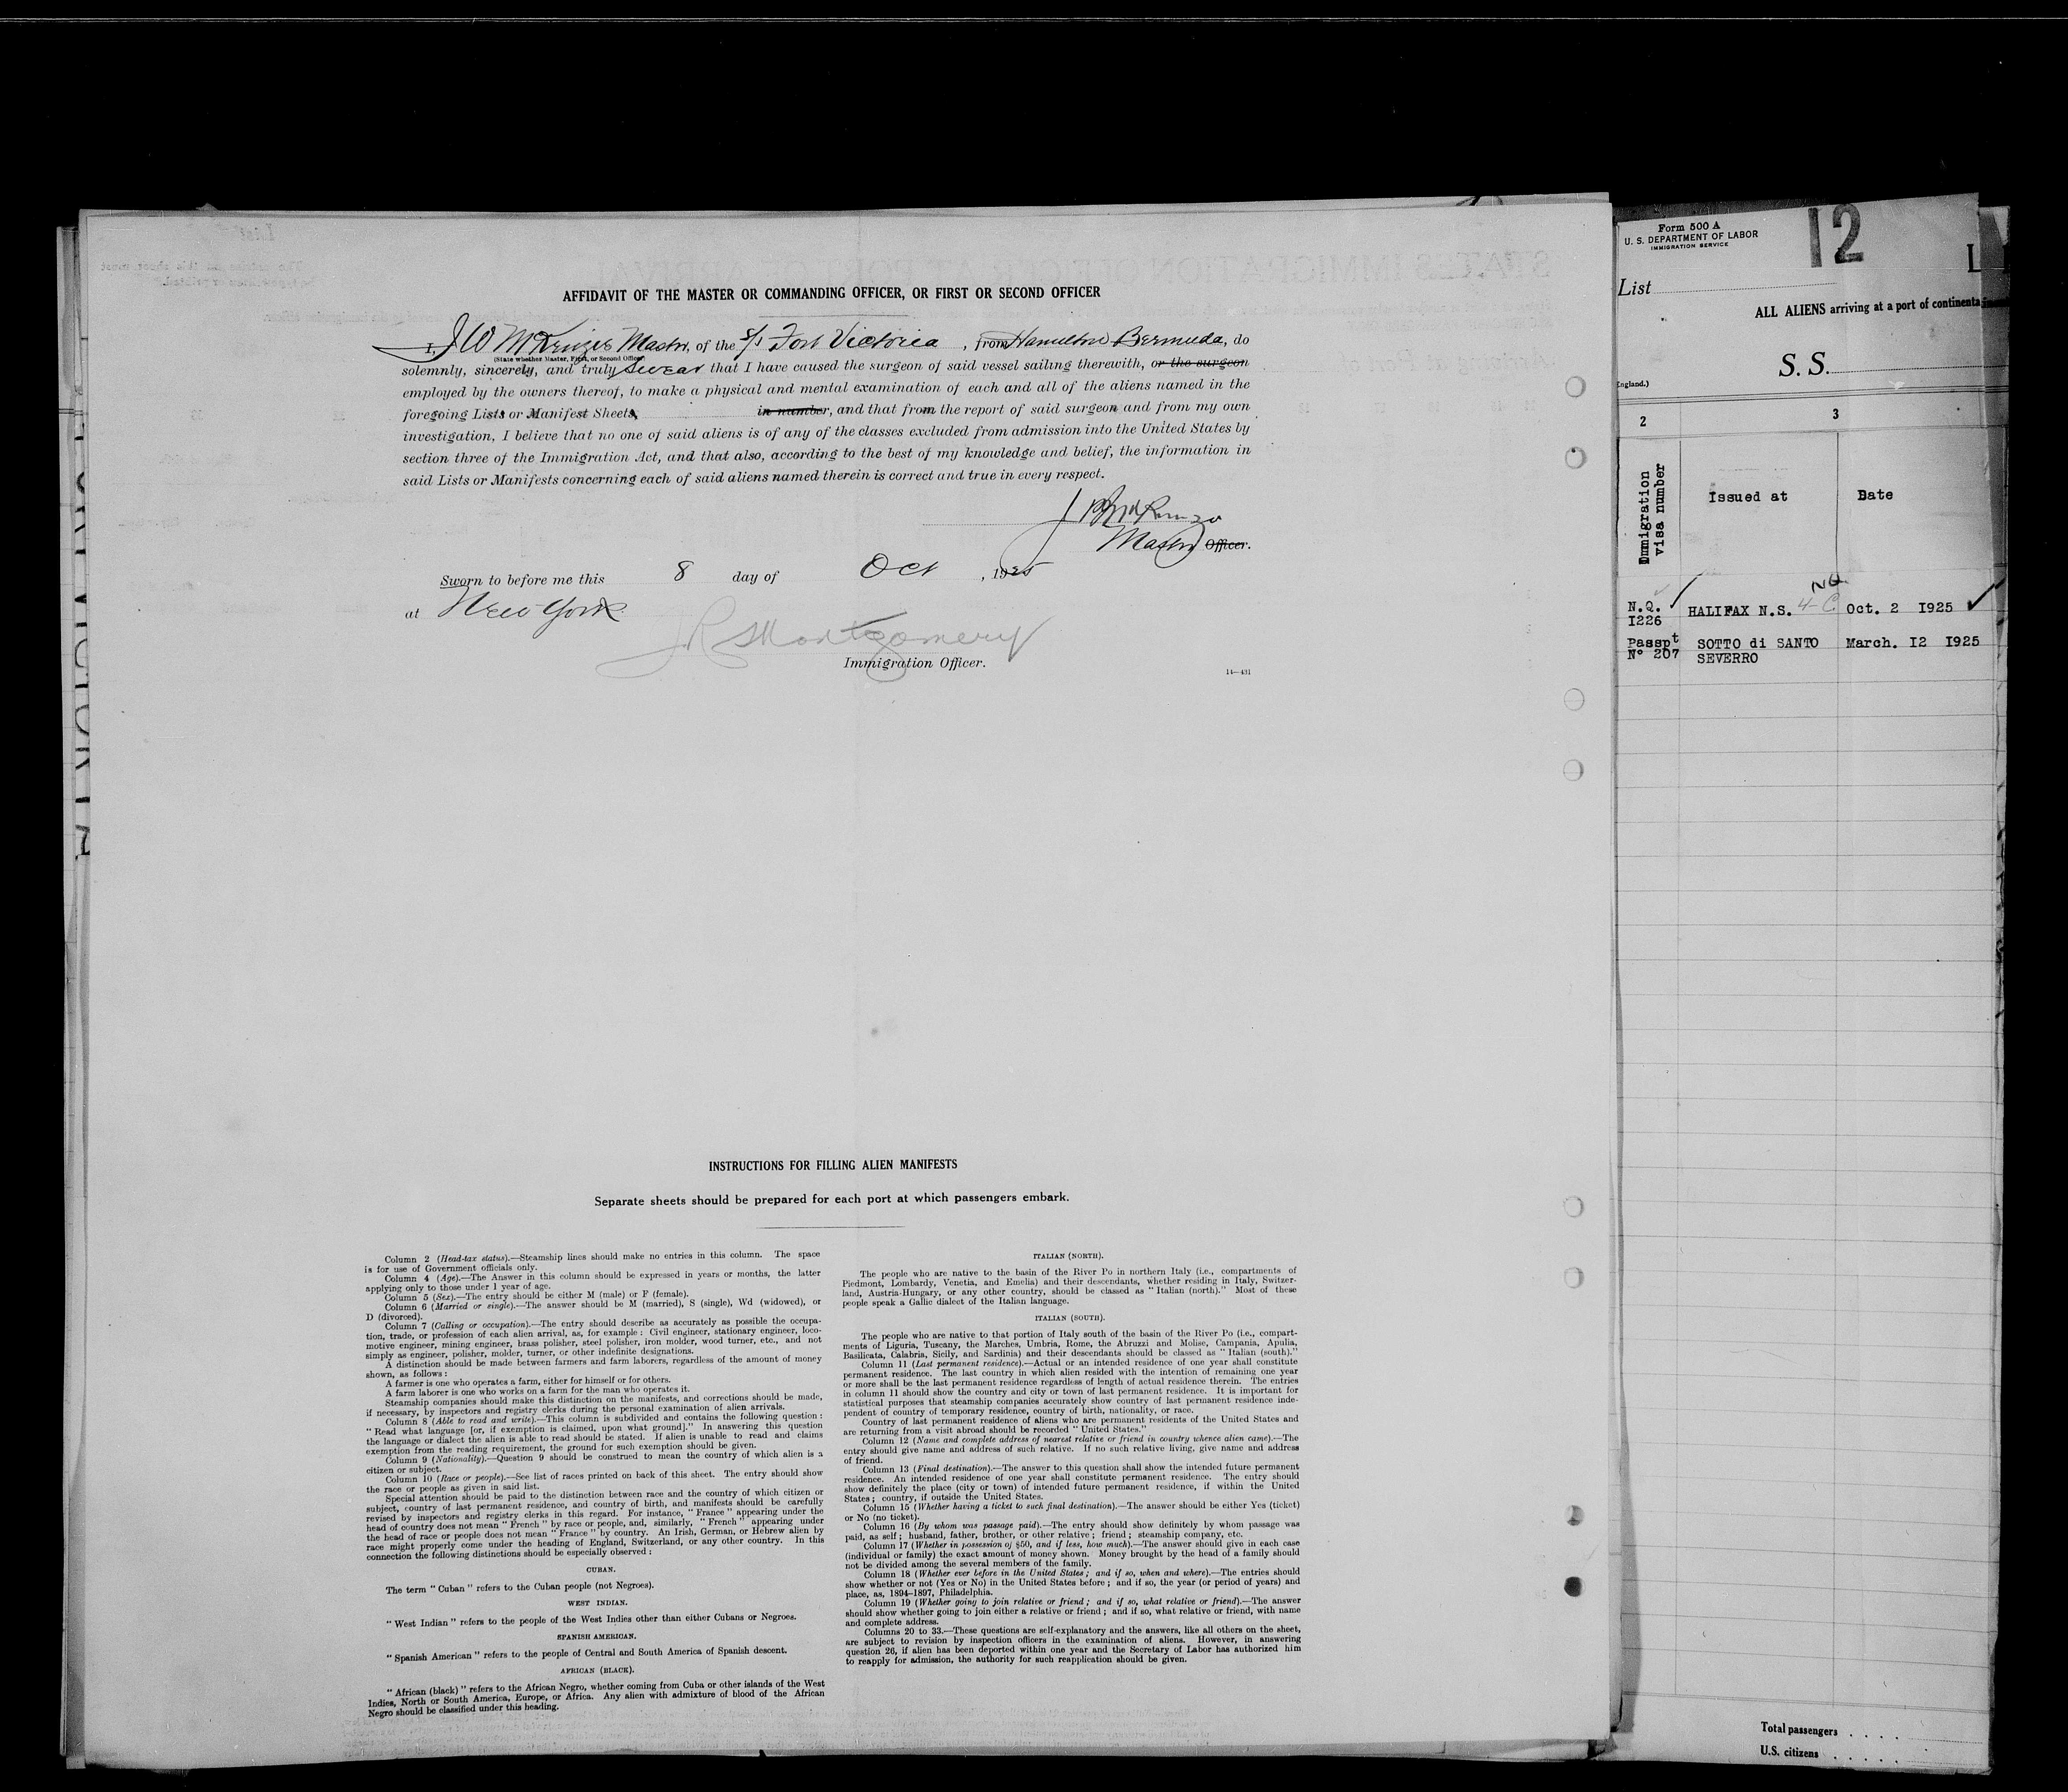 AFFIDAVIT OF THE MASTER OR COMMANDING OFFICER, OR FIRST OR SECOND OFFICER
I, J W McKenzie Master, of the S/S Fort Victoria, from Hamilton Bermuda, do
(State whether Master, First, or Second Officer)
solemnly, sincerely, and truly swear that I have caused the surgeon of said vessel sailing therewith, or the surgeon
employed by the owners thereof, to make a physical and mental examination of each and all of the aliens named in the
foregoing Lists or Manifest Sheets, in number, and that from the report of said surgeon and from my own
investigation, I believe that no one of said aliens is of any of the classes excluded from admission into the United States by
section three of the Immigration Act, and that also, according to the best of my knowledge and belief, the information in
said Lists or Manifests concerning each of said aliens named therein is correct and true in every respect.
Master Officer.
Sworn to before me this 8 day of Oct, 1925
at New York
J R Montgomery
Immigration Officer.
14—431
INSTRUCTIONS FOR FILLING ALIEN MANIFESTS
Separate sheets should be prepared for each port at which passengers embark.
Column 2 (Head-tax status).—Steamship lines should make no entries in this column. The space
is for use of Government officials only.
Column 4 (Age).—The Answer in this column should be expressed in years or months, the latter
applying only to those under 1 year of age.
Column 5 (Sex).—The entry should be either M (male) or F (female).
Column 6 (Married or single).—The answer should be M (married), S (single), Wd (widowed), or
D (divorced).
Column 7 (Calling or occupation).—The entry should describe as accurately as possible the occupa-
tion, trade, or profession of each alien arrival, as, for example: Civil engineer, stationary engineer, loco-
motive engineer, mining engineer, brass polisher, steel polisher, iron molder, wood turner, etc., and not
simply as engineer, polisher, molder, turner, or other indefinite designations.
A distinction should be made between farmers and farm laborers, regardless of the amount of money
shown, as follows:
A farmer is one who operates a farm, either for himself or for others.
A farm laborer is one who works on a farm for the man who operates it.
Steamship companies should make this distinction on the manifests, and corrections should be made,
if necessary, by inspectors and registry clerks during the personal examination of alien arrivals.
Column 8 (Able to read and write).—This column is subdivided and contains the following question:
"Read what language [or, if exemption is claimed, upon what ground]." In answering this question
the language or dialect the alien is able to read should be stated. If alien is unable to read and claims
exemption from the reading requirement, the ground for such exemption should be given.
Column 9 (Nationality).—Question 9 should be construed to mean the country of which alien is a
citizen or subject.
Column 10 (Race or people).—See list of races printed on back of this sheet. The entry should show
the race or people as given in said list.
Special attention should be paid to the distinction between race and the country of which citizen or
subject, country of last permanent residence, and country of birth, and manifests should be carefully
revised by inspectors and registry clerks in this regard. For instance, "France" appearing under the
head of country does not mean "French" by race or people, and, similarly, "French" appearing under
the head of race or people does not mean "France" by country. An Irish, German, or Hebrew alien by
race might properly come under the heading of England, Switzerland, or any other country. In this
connection the following distinctions should be especially observed:
CUBAN.
The term "Cuban" refers to the Cuban people (not Negroes).
WEST INDIAN.
"West Indian" refers to the people of the West Indies other than either Cubans or Negroes.
SPANISH AMERICAN.
"Spanish American" refers to the people of Central and South America of Spanish descent.
AFRICAN (BLACK).
"African (black)" refers to the African Negro, whether coming from Cuba or other islands of the West
Indies, North or South America, Europe, or Africa. Any alien with admixture of blood of the African
Negro should be classified under this heading.
ITALIAN (NORTH).
The people who are native to the basin of the River Po in northern Italy (i.e., compartments of
Piedmont, Lombardy, Venetia, and Emelia) and their descendants, whether residing in Italy, Switzer-
land, Austria-Hungary, or any other country, should be classed as "Italian (north)." Most of these
people speak a Gallic dialect of the Italian language.
ITALIAN (SOUTH).
The people who are native to that portion of Italy south of the basin of the River Po (i.e., compart-
ments of Liguria, Tuscany, the Marches, Umbria, Rome, the Abruzzi and Molise, Campania, Apulia,
Basilicata, Calabria, Sicily, and Sardinia) and their descendants should be classed as "Italian (south)."
Column 11 (Last permanent residence).—Actual or an intended residence of one year shall constitute
permanent residence. The last country in which alien resided with the intention of remaining one year
or more shall be the last permanent residence regardless of length of actual residence therein. The entries
in column 11 should show the country and city or town of last permanent residence. It is important for
statistical purposes that steamship companies accurately show country of last permanent residence inde-
pendent of country of temporary residence, country of birth, nationality, or race.
Country of last permanent residence of aliens who are permanent residents of the United States and
are returning from a visit abroad should be recorded "United States."
Column 12 (Name and complete address of nearest relative or friend in country whence alien came).—The
entry should give name and address of such relative. If no such relative living, give name and address
of friend.
Column 13 (Final destination).—The answer to this question shall show the intended future permanent
residence. An intended residence of one year shall constitute permanent residence. The entry should
show definitely the place (city or town) of intended future permanent residence, if within the United
States; country, if outside the United States.
Column 15 (Whether having a ticket to such final destination).—The answer should be either Yes (ticket)
or No (no ticket).
Column 16 (By whom was passage paid).—The entry should show definitely by whom passage was
paid, as self; husband, father, brother, or other relative; friend; steamship company, etc.
Column 17 (Whether in possession of $50, and if less, how much).—The answer should give in each case
(individual or family) the exact amount of money shown. Money brought by the head of a family should
not be divided among the several members of the family.
Column 18 (Whether ever before in the United States; and if so, when and where).—The entries should
show whether or not (Yes or No) in the United States before; and if so, the year (or period of years) and
place, as, 1894-1897, Philadelphia.
Column 19 (Whether going to join relative or friend; and if so, what relative or friend).—The answer
should show whether going to join either a relative or friend; and if so, what relative or friend, with name
and complete address.
Columns 20 to 33.—These questions are self-explanatory and the answers, like all others on the sheet,
are subject to revision by inspection officers in the examination of aliens. However, in answering
question 26, if alien has been deported within one year and the Secretary of Labor has authorized him
to reapply for admission, the authority for such reapplication should be given.
Form 500 A
U. S. DEPARTMENT OF LABOR
IMMIGRATION SERVICE
12
L
List
ALL ALIENS arriving at a port of continenta
S. S.
ngland.)
2 3
Immigration visa number
Issued at Date
N.Q. I226 HALIFAX N.S. 4-C NQ Oct. 2 I925
Passpt N° 207 SOTTO di SANTO SEVERRO March. I2 I925
Total passengers
U.S. citizens